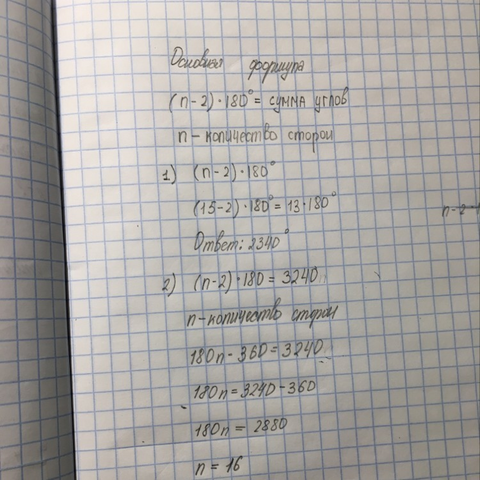 Основная формула
(n-2)·180°= сумма углов
n - количество сторон
1) (n-2)·180°
(15-2)·180°= 13·180°
Ответ: 2340°
2) (n-2)·180 = 3240
n-количество сторон
180n - 360 = 3240
180n = 3240 - 360
180n = 2880
n = 16
n-2-